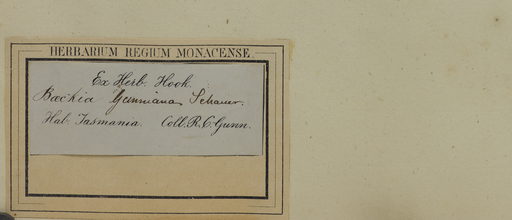 HERBARIUM REGIUM MONACENSE
Ex Herb. Hook.
Bæckia Gunniana Schauer.
Hab. Tasmania. Coll. R. C. Gunn.